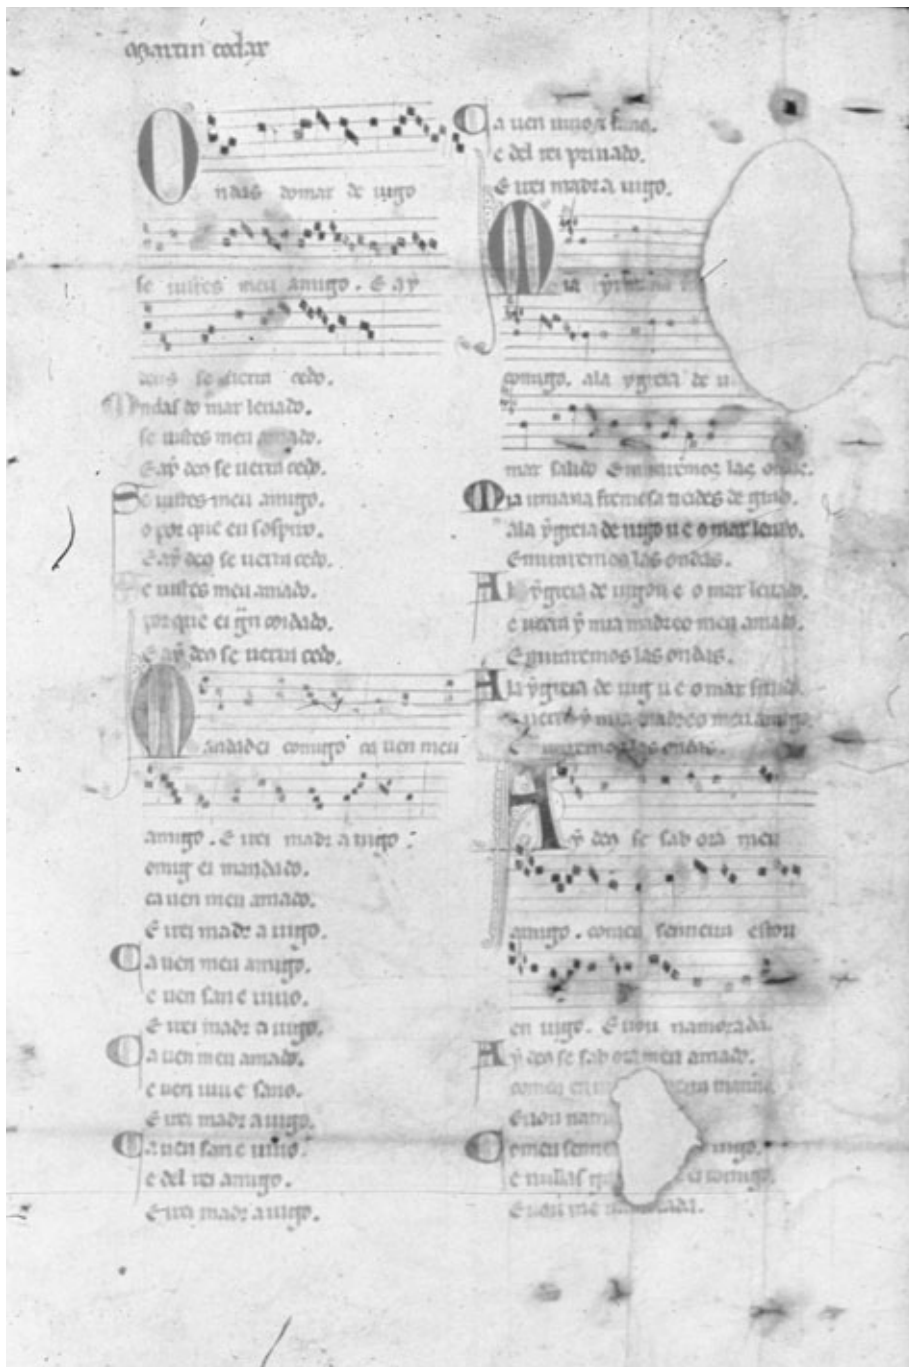 martin codax
Ondas do mar de uigo
se uistes meu amigo. E ay
deus se uerra cedo.
Ondas do mar leuado.
se uistes meu amado.
E ay deo se uerra cedo.
Se uistes meu amigo.
o por que eu sospiro.
E ay deo se uerra cedo.
Se uistes meu amado.
por que ei gran coidado.
E ay deo se uerra cedo.
Mandad ei comigo ca uen meu
amigo. E irei madr a uigo.
Comig ei mandado.
ca uen meu amado.
E irei madr a uigo.
Ca uen meu amigo.
e uen san e uiuo.
E irei madr a uigo.
Ca uen meu amado.
e uen uiu e sano.
E irei madr a uigo.
Ca uen san e uiuo.
e del rei amigo.
E irei madr a uigo.
Ca uen uiuo e sano.
e del rei priuado.
E irei madr a uigo.
Mia yrmana
comigo. ala ygreia de
mar salido E miraremos las ondas.
Mia irmana fremosa treides de grado.
ala ygreia de uigo u e o mar leuado.
E miraremos las ondas.
Ala ygreia de uigo u e o mar leuado.
e uerra y mia madre o meu amado.
E miraremos las ondas.
Ala ygreia de uig u e o mar salido.
e uerra y mia madre o meu amigo.
E miraremos las ondas.
Ay deus se sab ora meu
amigo. com eu senneira estou
en uigo. E uou namorada.
Ay deo se sab ora meu amado.
com eu en manno
E uou nam
Com eu senne uigo.
e nullas comigo.
E uou namorada.